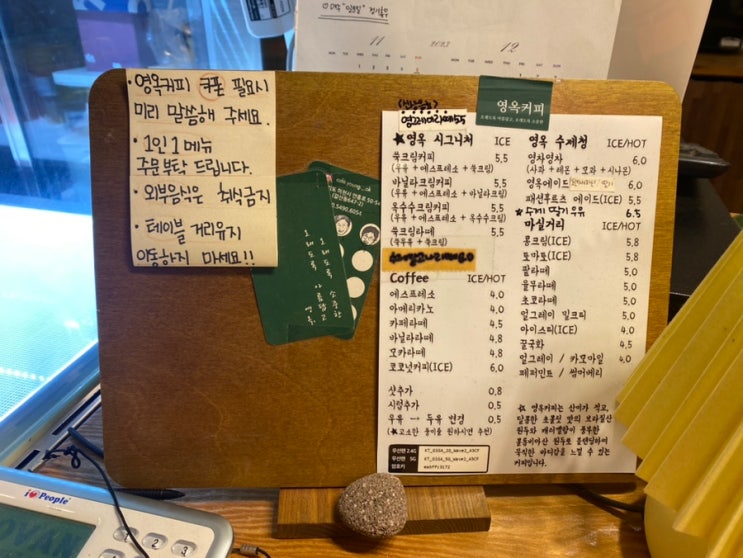 11
2023
12
· 영옥커피 쿠폰 필요시
미리 말씀해 주세요.
· 1인 1메뉴
주문부탁 드립니다.
· 외부음식은 취식금지
· 테이블 거리유지
이동하지 마세요!!
오래도록 아름답고
오래도록 소중한
영옥커피
★영옥 시그니처 ICE
쑥크림커피 5,5
(우유 + 에스프레소 + 쑥크림)
바닐라크림커피 5,5
(우유 + 에스프레소 + 바닐라크림)
옥수수크림커피 5,5
(우유 + 에스프레소 + 옥수수크림)
쑥크림라떼 5,5
(쑥우유 + 쑥크림)
Coffee ICE/HOT
에스프레소 4,0
아메리카노 4,0
카페라떼 4,5
바닐라라떼 4,8
모카라떼 4,8
코코넛커피(ICE) 6,0
샷추가 0,8
시럽추가 0,5
우유 → 두유 변경 0,5
(★고소한 풍미를 원하시면 추천)
무선랜 2.4G
무선랜 5G
암호키
영옥 수제청 ICE/HOT
영차영차 6,0
(사과 + 레몬 + 모과 + 시나몬)
영옥에이드 6,0
패션후르츠 에이드(ICE) 5,5
★수제 딸기우유 6.5
마실거리 ICE/HOT
콩크림(ICE) 5,8
토마토(ICE) 5,8
팥라떼 5,0
율무라떼 5,0
초코라떼 5,0
얼그레이 밀크티 5,0
아이스티(ICE) 4,0
꿀국화 4,5
얼그레이 / 카모마일 4,0
페퍼민트 / 썸머베리
★ 영옥커피는 산미가 적고,
달콤한 초콜릿 맛의 브라질산
원두와 캐러멜향이 풍부한
콜롬비아산 원두로 블렌딩하여
묵직한 바디감을 느낄 수 있는
커피입니다.
i ♥ People